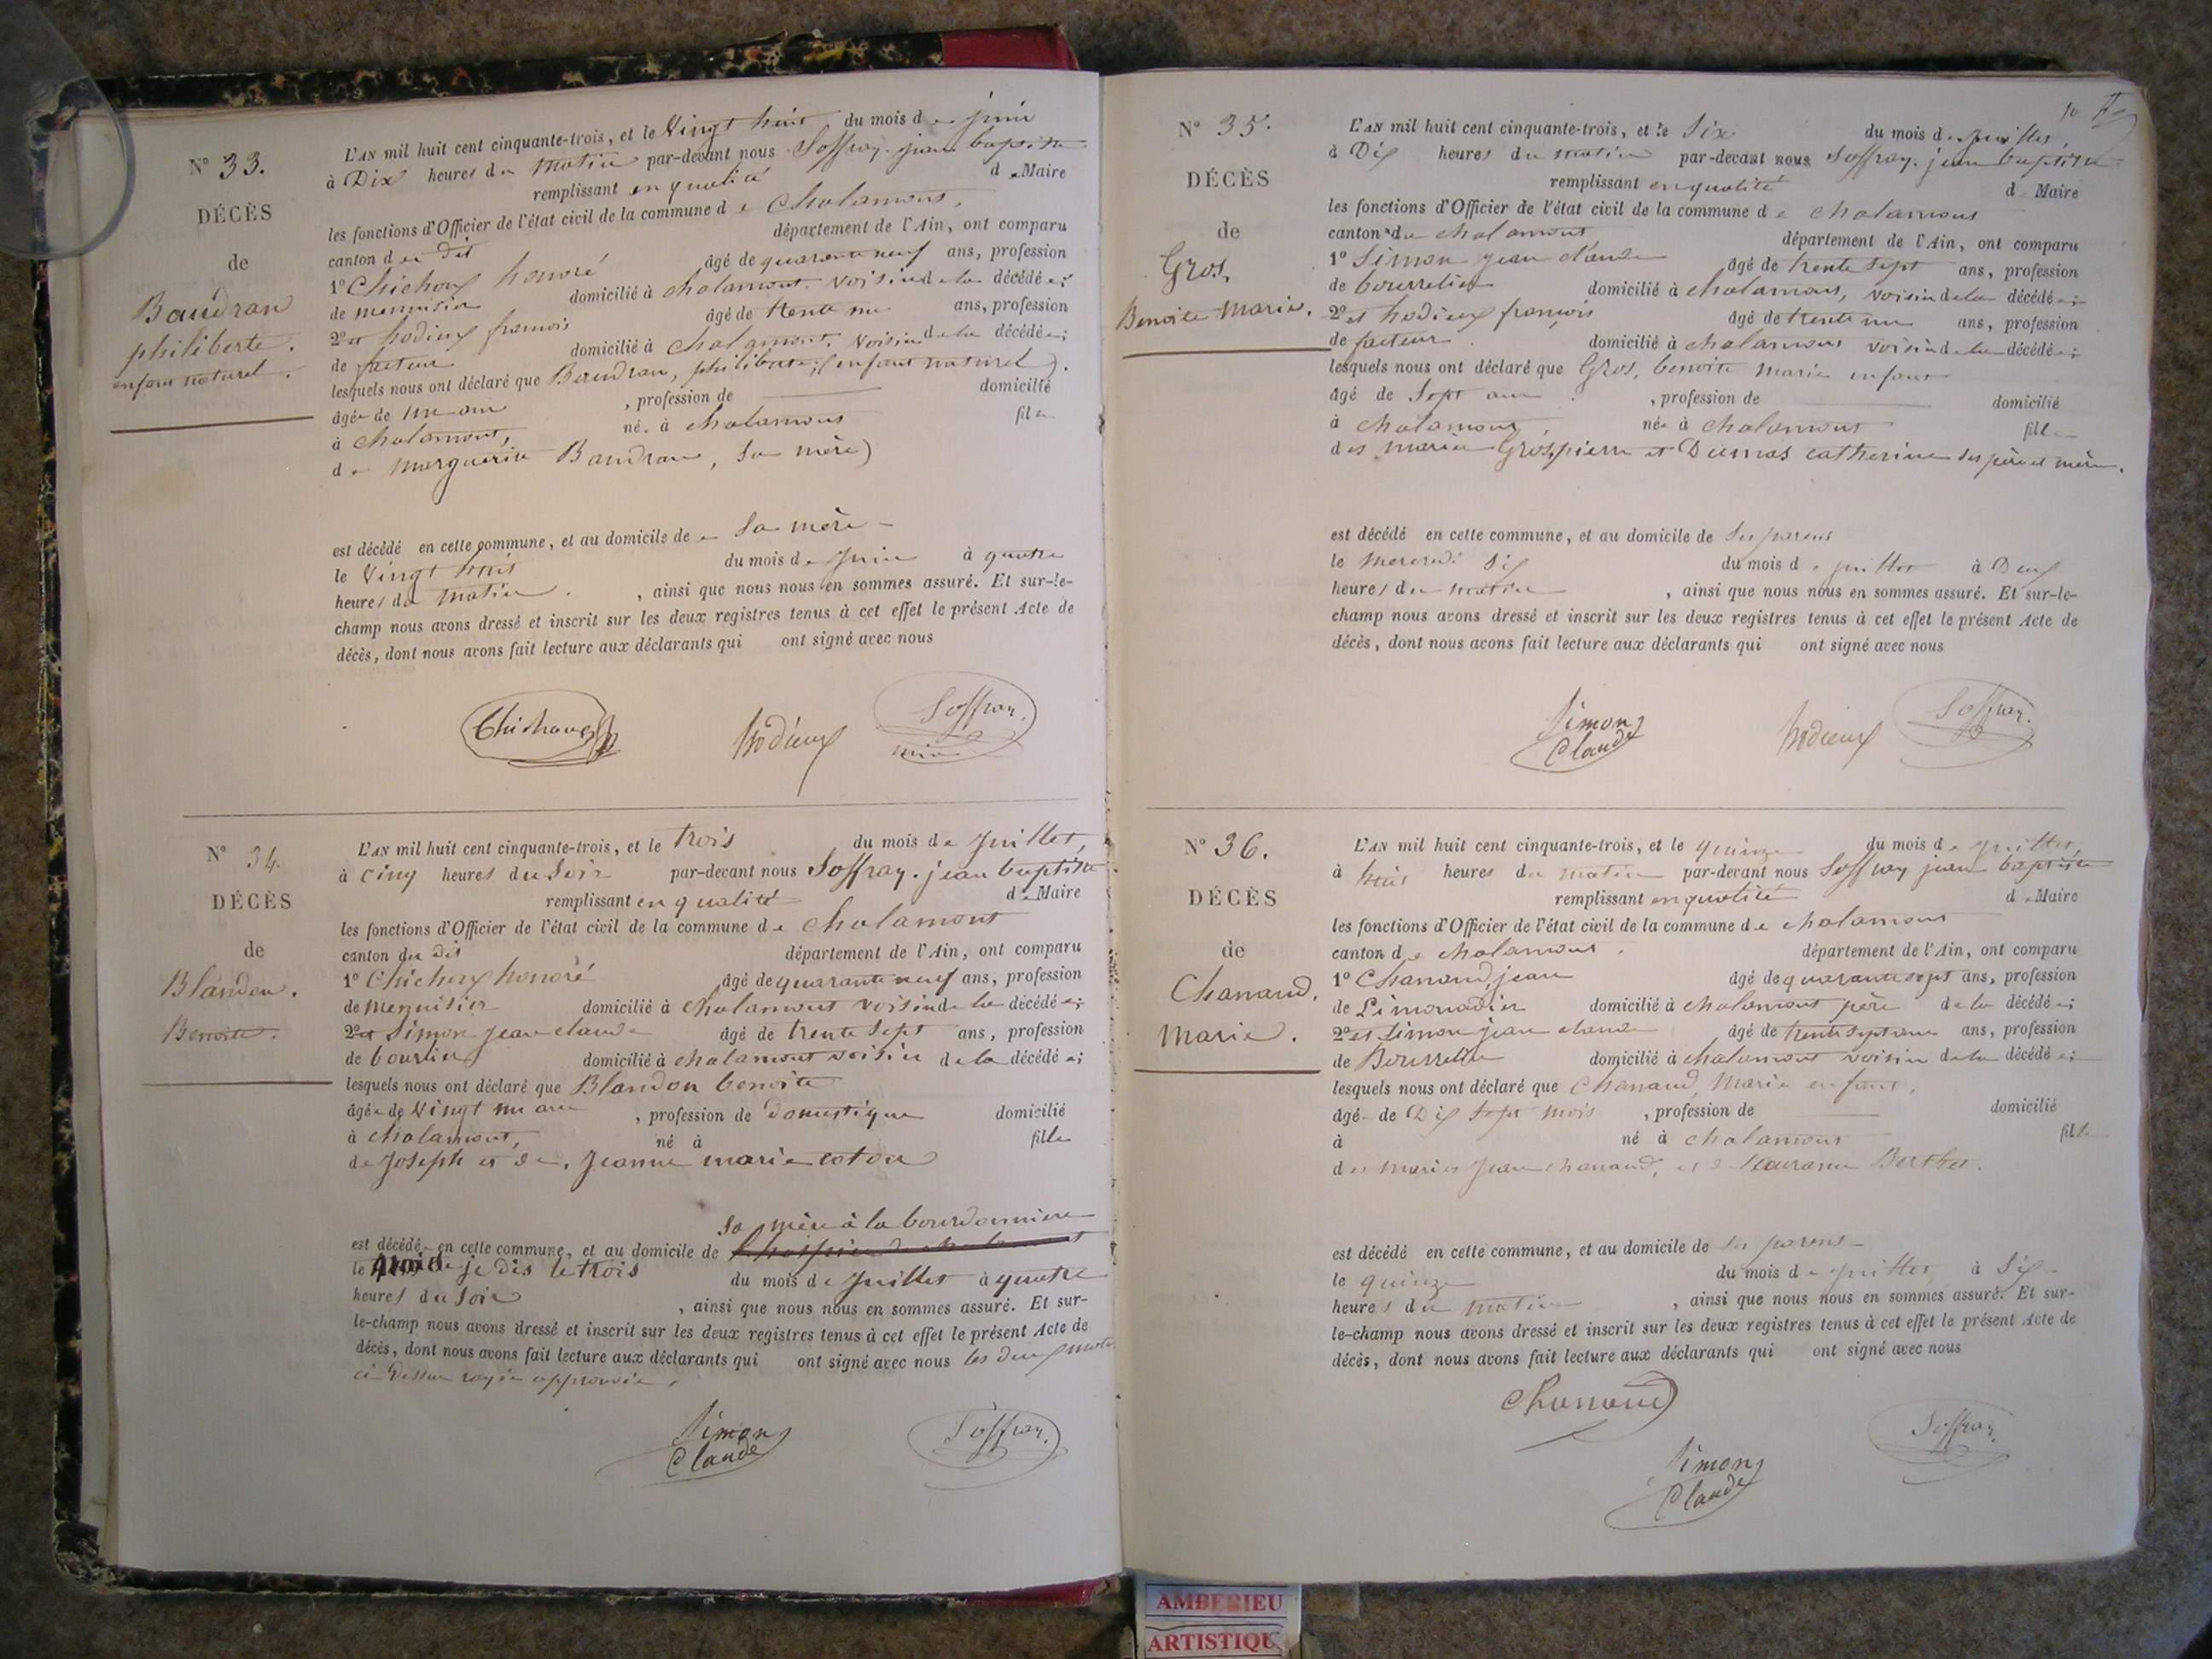 N° 33.
DÉCÈS
de
Baudran
philiberte.
enfant naturel.
L'AN mil huit cent cinquante-trois, et le Vingt huit du mois de juin
à Dix heures du matin par-devant nous Soffray. jean baptiste
remplissant en qualité de Maire
les fonctions d'Officier de l'état civil de la commune de Chalamont.
canton du dit département de l'Ain, ont comparu
1° honoré âgé de quarante neuf ans, profession
de menuisier domicilié à chalamont. voisin de la décédée;
2° et hodieux francois âgé de trente un ans, profession
de facteur domicilié à chalamont. voisin de la décédée;
lesquels nous ont déclaré que Baudran, philiberte, (enfant naturel).
âgée de un an , profession de domicilié
à chalamont, née à chalamont fille
de marguerite Baudran, sa mère)
est décédé en cette commune, et au domicile de sa mère
le Vingt huit du mois de juin à quatre
heures du matin. , ainsi que nous nous en sommes assuré. Et sur-le-
champ nous avons dressé et inscrit sur les deux registres tenus à cet effet le présent Acte de
décès, dont nous avons fait lecture aux déclarants qui ont signé avec nous
hodieux Soffray
N° 34.
DÉCÈS
de
Blandon.
Benoite.
L'AN mil huit cent cinquante-trois, et le trois du mois de juillet,
à cinq heures du soir par-devant nous Soffray. jean baptiste
remplissant en qualité de Maire
les fonctions d'Officier de l'état civil de la commune de chalamont
canton du dit département de l'Ain, ont comparu
1° honoré âgé de quarante neuf ans, profession
de menuisier domicilié à chalamont voisin de la décédée;
2° et Simon jean claude âgé de trente sept ans, profession
de domicilié à chalamont voisin de la décédée;
lesquels nous ont déclaré que Blandon benoite
âgée de Vingt un ans , profession de domestique domicilié
à chalamont, né à fille
de Joseph et de, jeanne marie
sa mère à la bourdonniere
est décédée en cette commune, et au domicile de
le je dis le trois du mois de juillet à quatre
heures du soir , ainsi que nous nous en sommes assuré. Et sur-
le-champ nous avons dressé et inscrit sur les deux registres tenus à cet effet le présent Acte de
décès, dont nous avons fait lecture aux déclarants qui ont signé avec nous les deux mots
ci dessus rayés approuvés.
Simon
Claude
Soffray
10
N° 35.
DÉCÈS
de
Gros,
Benoite Marie.
L'AN mil huit cent cinquante-trois, et le Six du mois de juillet,
à Dix heures du matin par-devant nous Soffray. jean baptiste
remplissant en qualité de Maire
les fonctions d'Officier de l'état civil de la commune de chalamont
canton de chalamont département de l'Ain, ont comparu
1° Simon jean claude âgé de trente sept ans, profession
de bourrelier domicilié à chalamont, voisin de la décédée;
2° et hodieux françois âgé de trente un ans, profession
de facteur domicilié à chalamont voisin de la décédée;
lesquels nous ont déclaré que Gros, benoite marie enfant
âgé de Sept ans , profession de domicilié
à chalamont, née à chalamont fille
des mariés Gros, pierre et Dumas catherine ses père et mère.
est décédé en cette commune, et au domicile de ses parens
le mercredi six du mois de juillet à Deux
heures du matin , ainsi que nous nous en sommes assuré. Et sur-le-
champ nous avons dressé et inscrit sur les deux registres tenus à cet effet le présent Acte de
décès, dont nous avons fait lecture aux déclarants qui ont signé avec nous
Simon
Claude
hodieux Soffray
N° 36.
DÉCÈS
de
Chanaud.
Marie.
L'AN mil huit cent cinquante-trois, et le quinze du mois de juillet,
à huit heures du matin par-devant nous Soffray jean baptiste
remplissant en qualité de Maire
les fonctions d'Officier de l'état civil de la commune de chalamont
canton de chalamont. département de l'Ain, ont comparu
1° Chanaud, jean âgé de quarante sept ans, profession
de Limonadier domicilié à chalamont père de la décédée;
2° et Simon jean claude âgé de trente sept ans ans, profession
de Bourrelier domicilié à chalamont voisin de la décédée;
lesquels nous ont déclaré que Chanaud, Marie enfant,
âgé de Dix sept mois , profession de domicilié
à né à chalamont fille
des mariés jean chanaud, et de Berthet.
est décédé en cette commune, et au domicile de ses parens
le quinze du mois de juillet, à Six
heures du matin , ainsi que nous nous en sommes assuré. Et sur-
le-champ nous avons dressé et inscrit sur les deux registres tenus à cet effet le présent Acte de
décès, dont nous avons fait lecture aux déclarants qui ont signé avec nous
Chanaud
Simon
Claude
Soffray
AMBERIEU
ARTISTIQU